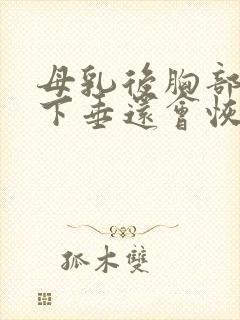 母乳後胸部
下垂還會恢
孤木雙